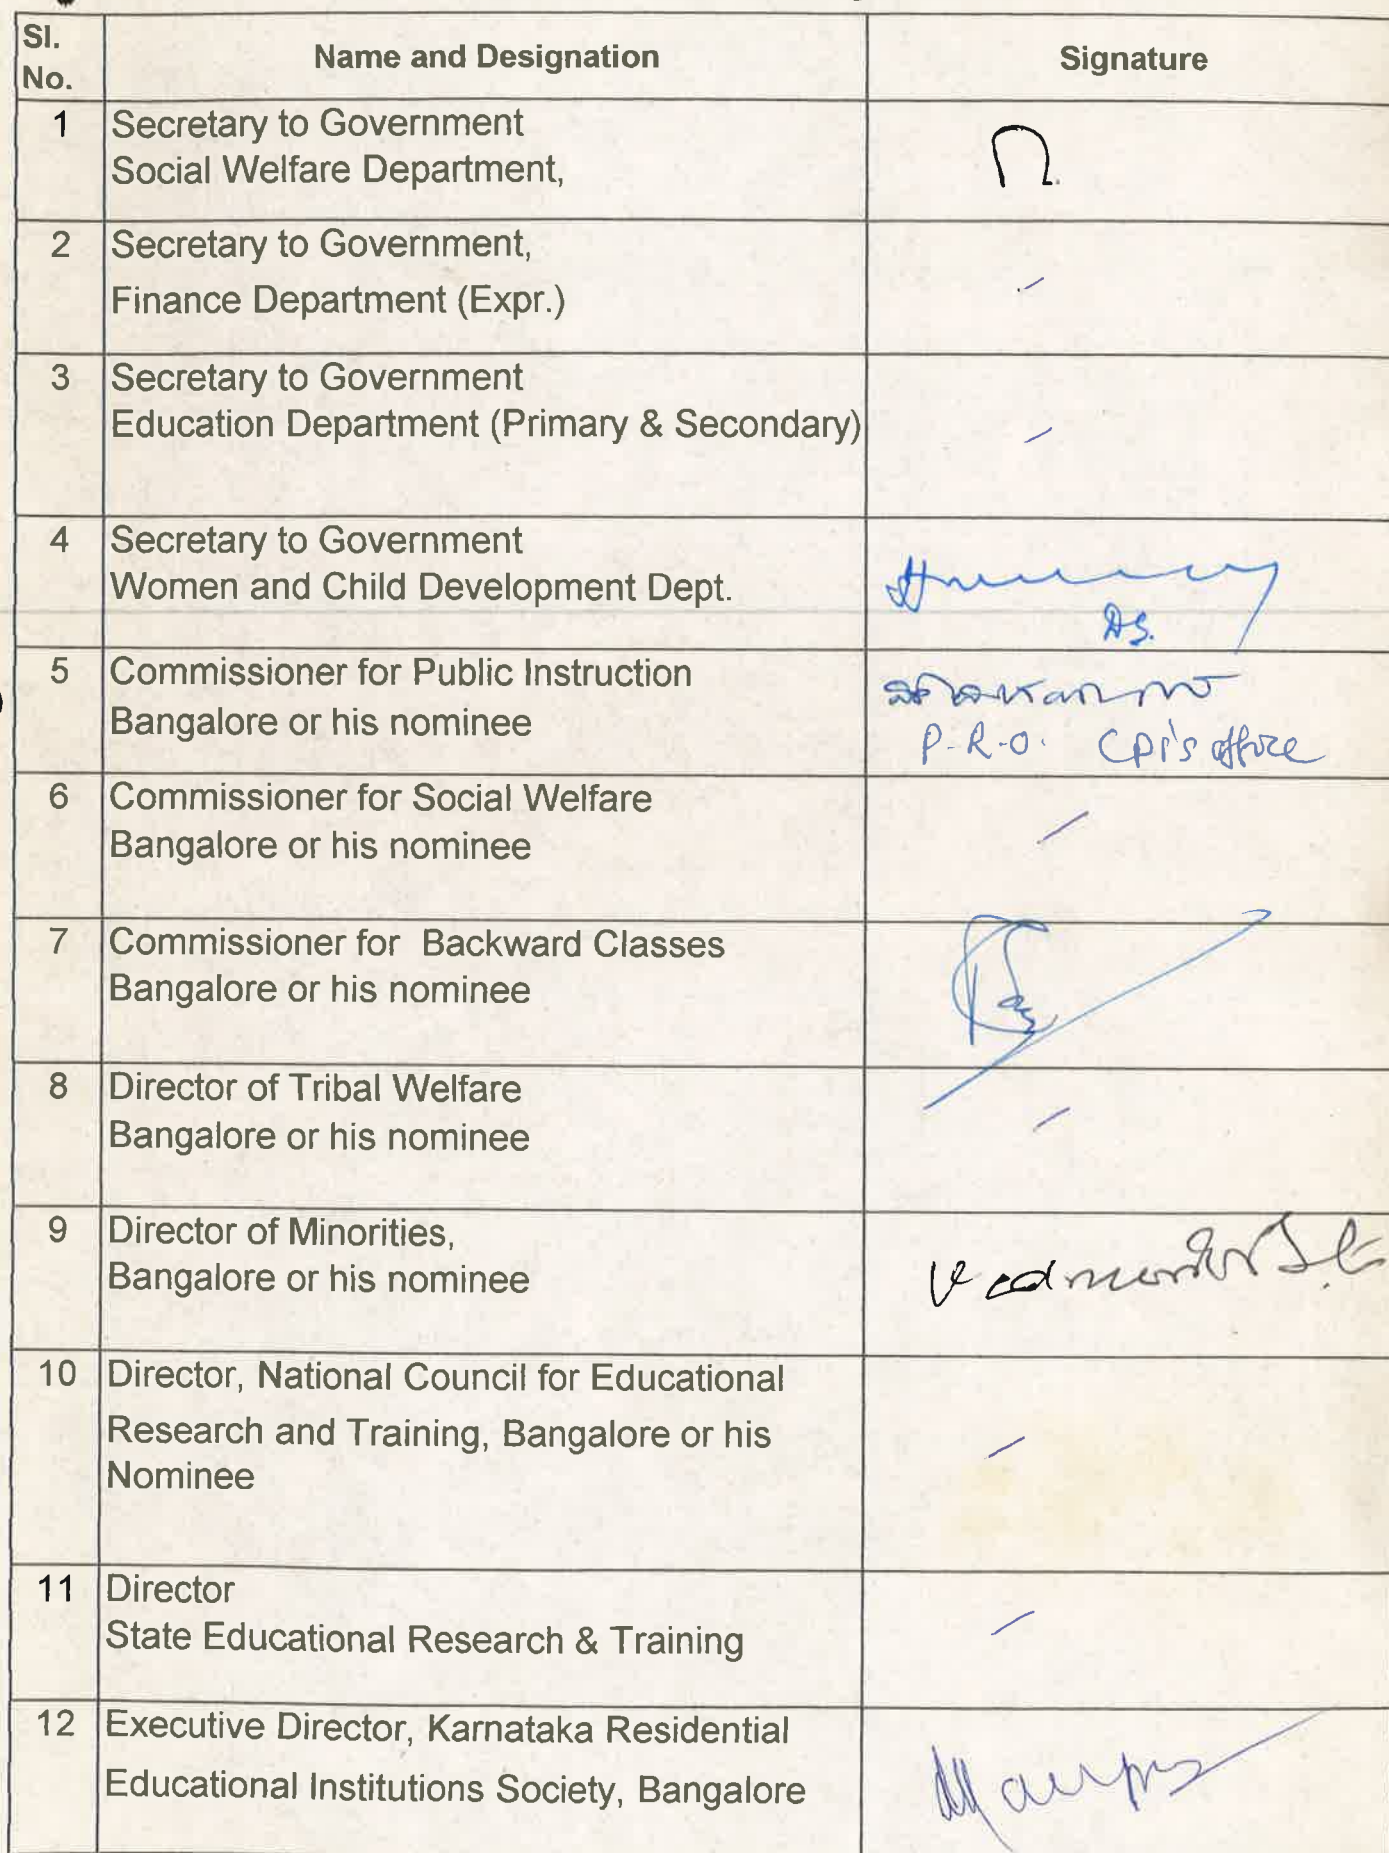 Sl.
No.
Name and Designation
Signature
1
Secretary to Government
Social Welfare Department,
2
Secretary to Government,
Finance Department (Expr.)
3
Secretary to Government
Education Department (Primary & Secondary)
4
Secretary to Government
Women and Child Development Dept.
5
Commissioner for Public Instruction
Bangalore or his nominee
P.R.O. CPI's office
6
Commissioner for Social Welfare
Bangalore or his nominee
7
Commissioner for Backward Classes
Bangalore or his nominee
8
Director of Tribal Welfare
Bangalore or his nominee
9
Director of Minorities,
Bangalore or his nominee
10
Director, National Council for Educational
Research and Training, Bangalore or his
Nominee
11
Director
State Educational Research & Training
12
Executive Director, Karnataka Residential
Educational Institutions Society, Bangalore